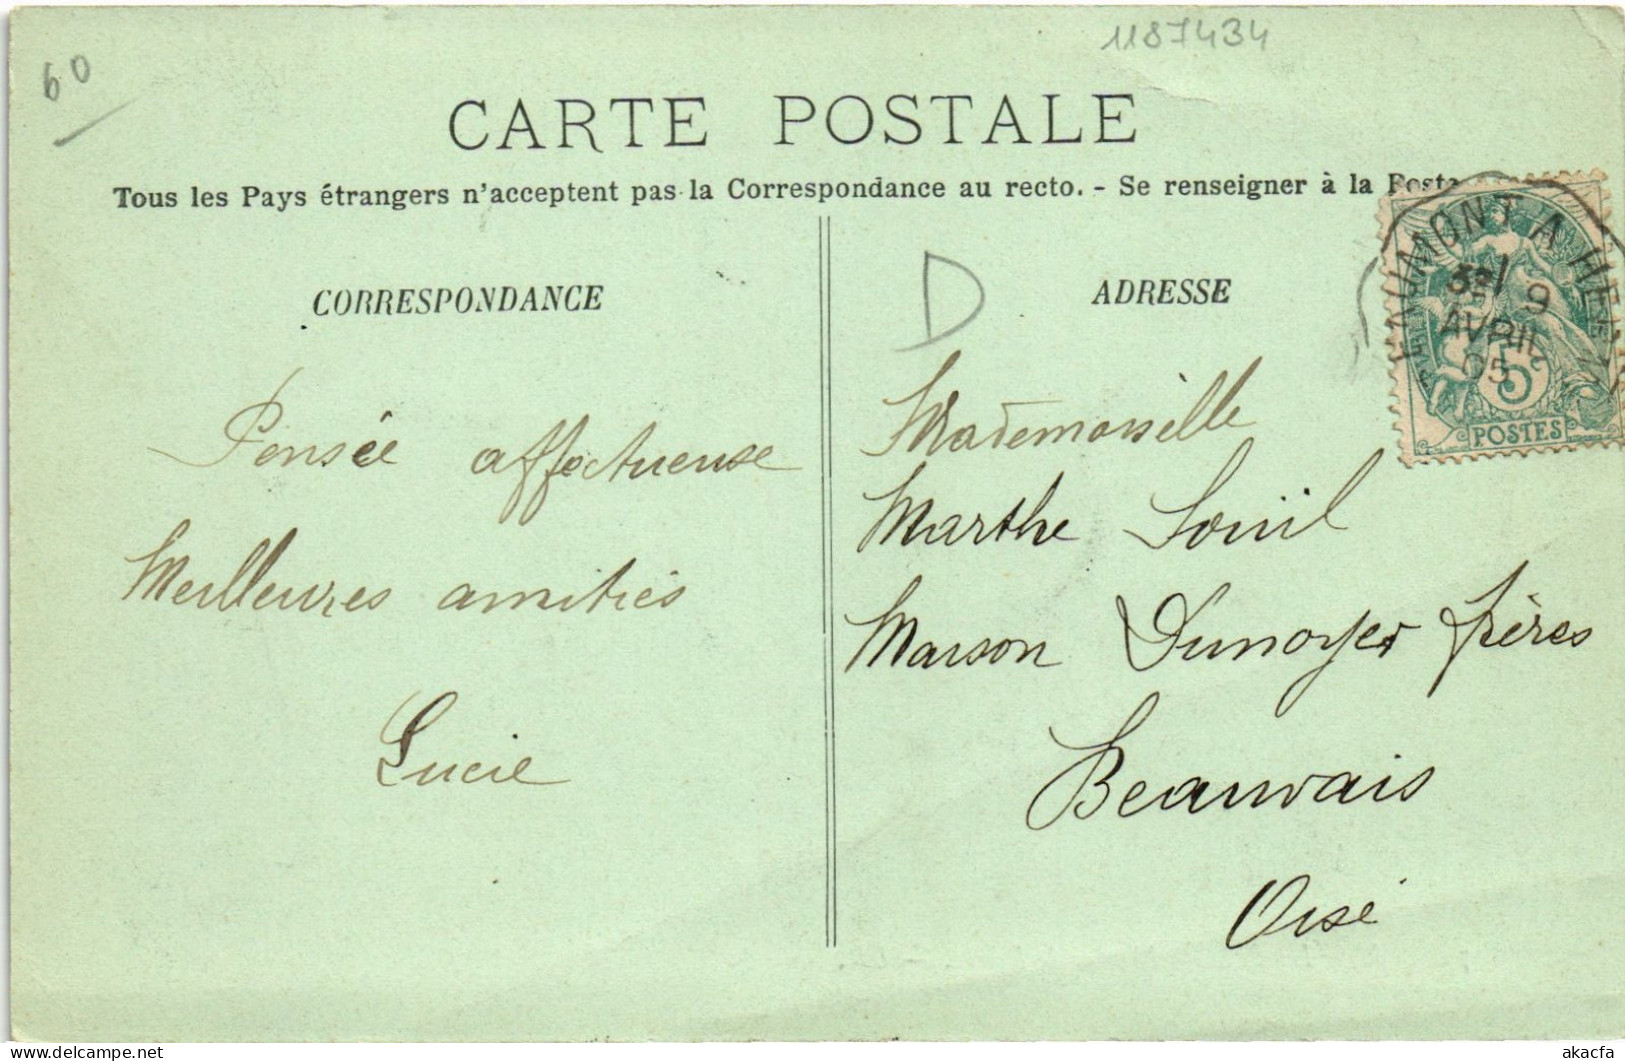 1187434
60
CARTE POSTALE
Tous les Pays étrangers n'acceptent pas la Correspondance au recto. - Se renseigner à la Poste
CORRESPONDANCE
D
ADRESSE
9
AVRIL
05
5
POSTES
Pensée affectueuse
Meilleures amitiés
Lucie
Mademoiselle
Marthe
Maison Dunoyer frères
Beauvais
Oise
akacfa